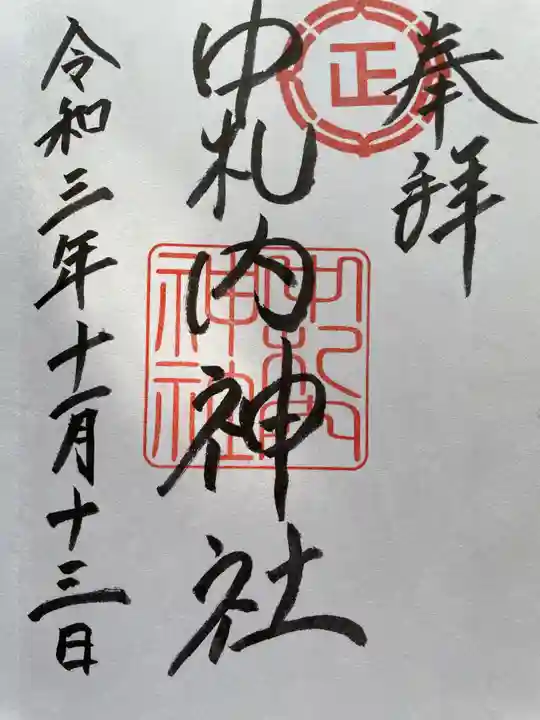 奉拝
正
中札内神社
中札内
神社
令和三年十一月十三日